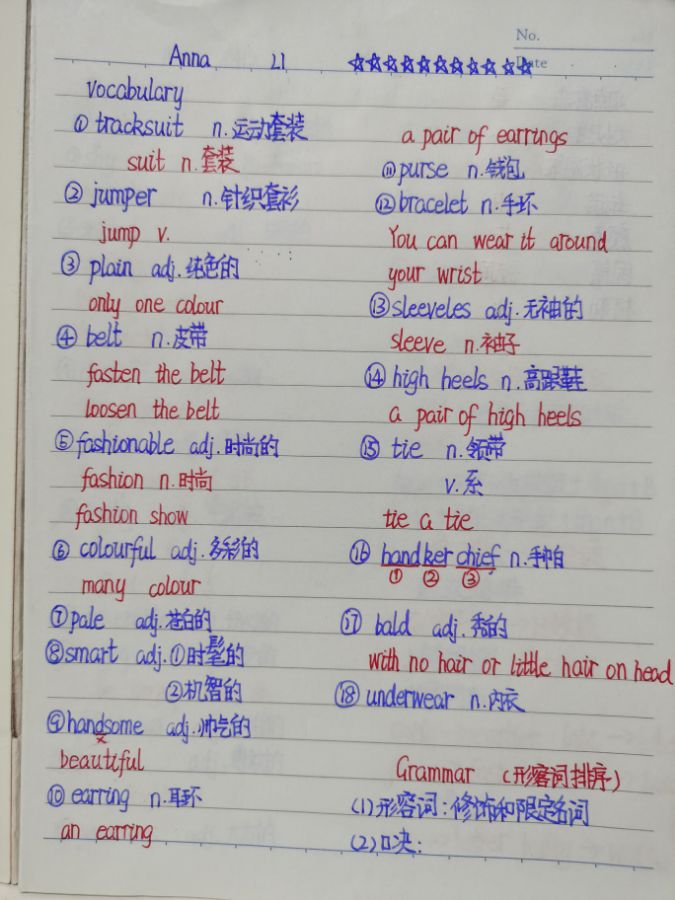 No.
Date
Anna L1 ☆☆☆☆☆☆☆☆☆☆☆
vocabulary
① tracksuit n.运动套装
suit n.套装
② jumper n.针织套衫
jump v.
③ plain adj.纯色的
only one colour
④ belt n.皮带
fasten the belt
loosen the belt
⑤ fashionable adj.时尚的
fashion n.时尚
fashion show
⑥ colourful adj.多彩的
many colour
⑦ pale adj.苍白的
⑧ smart adj.①时髦的
②机智的
⑨ handsome adj.帅气的
beautiful
⑩ earring n.耳环
an earring
a pair of earrings
⑪ purse n.钱包
⑫ bracelet n.手环
You can wear it around
your wrist
⑬ sleeveles adj.无袖的
sleeve n.袖子
⑭ high heels n.高跟鞋
a pair of high heels
⑮ tie n.领带
v.系
tie a tie
⑯ handkerchief n.手帕
① ② ③
⑰ bald adj.秃的
with no hair or little hair on head
⑱ underwear n.内衣
Grammar (形容词排序)
(1)形容词:修饰和限定名词
(2)口决: